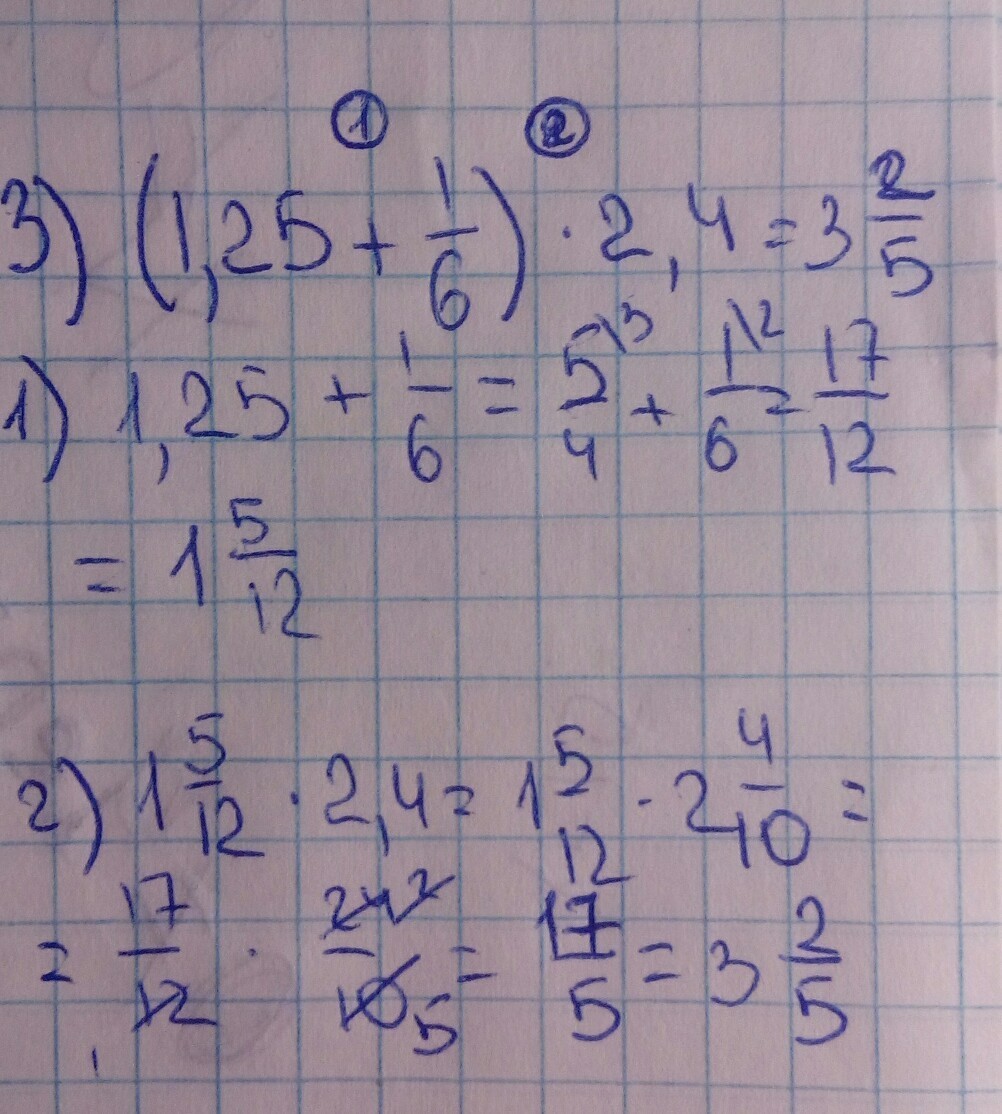 ① ②
3) (1,25 + 1/6) · 2,4 = 3 2/5
1) 1,25 + 1/6 = 5\3/4 + 1\2/6 = 17/12
= 1 5/12
2) 1 5/12 · 2,4 = 1 5/12 · 2 4/10 =
= 17/12 · 24 2/10 5 = 17/5 = 3 2/5